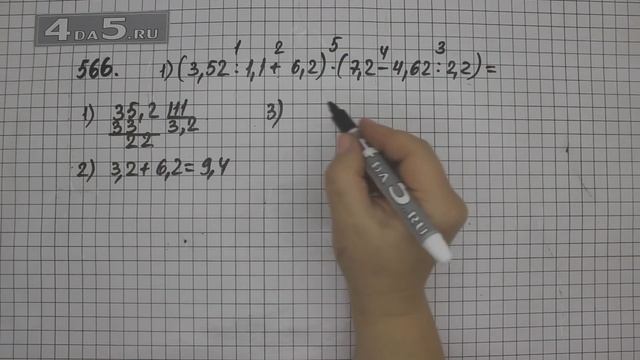 4DA5.RU
566. 1) (3,52 : 1,1 + 6,2) · (7,2 − 4,62 : 2,2) =
1 2 5 4 3
1) 35,2 | 11
33 3,2
22
2) 3,2 + 6,2 = 9,4
3)
4DA5.RU